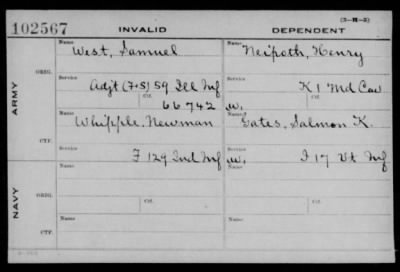 (3-M-3)
102567 INVALID DEPENDENT
Name West, Samuel Name Neipoth, Henry
ORIG.
ARMY
Service Adjt (F+S) 59 Ill Inf Service K 1 Md Cav
Ctf. 66742 Ctf. W.
Name Whipple, Newman Name Gates, Salmon K.
CTF.
Service F 129 Ind Inf Service W. I 17 Vt Inf
Name Name
NAVY
ORIG.
Service Ctf. Service Ctf.
Name Name
CTF.
Service Service